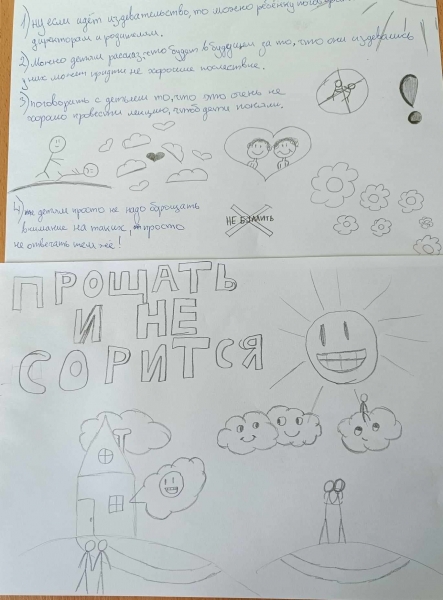 1) ну если идёт издевательство, то можно ребёнку поговорить
директорам и родителям.
2) Можно детям рассказ, что будет в будущем за то, что они издевались
у них может придти не хорошие последствие.
3) поговорить с детьми то, что это очень не
хорошо провести лекцию, чтоб дети поняли.
4) детям просто не надо обращать
внимание на таких, просто
не отвечать тем же!
НЕ БУЛЛИТЬ
ПРОЩАТЬ
И НЕ
СОРИТСЯ